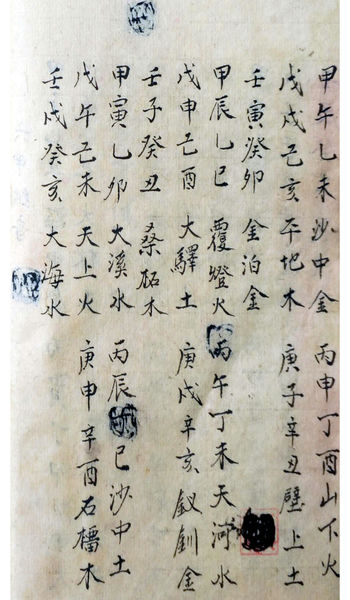 甲午乙未沙中金 丙申丁酉山下火
戊戌己亥平地木 庚子辛丑壁上土
壬寅癸卯 金泊金
甲辰乙巳 覆燈火 丙午丁未天河水
戊申己酉 大驛土 庚戌辛亥釵釧金
壬子癸丑 桑柘木
甲寅乙卯 大溪水 丙辰巳沙中土
戊午己未 天上火 庚申辛酉石榴木
壬戌癸亥 大海水